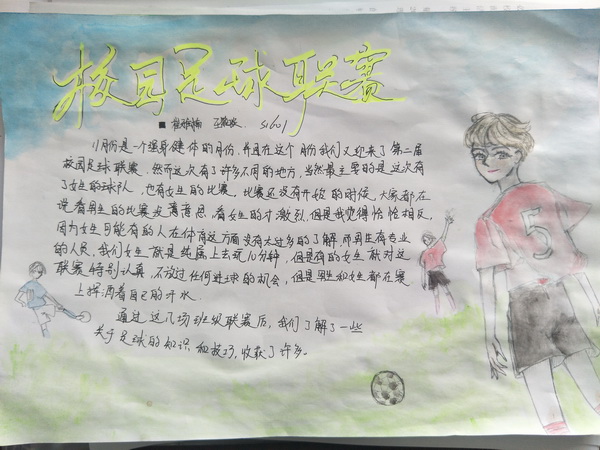 校园足球联赛
S1601
11月份是一个强身健体的月份,并且在这个月份我们又迎来了第二届
校园足球联赛.然而这次有了许多不同的地方,当然最主要的是这次有
了女生的球队,也有女生的比赛.比赛还没有开始的时候,大家都在
说看男生的比赛没意思,看女生的才激烈,但是我觉得恰恰相反,
因为女生可能有的人在体育这方面没有太过多的了解,而男生有专业
的人员,我们女生就是纯属上去玩10分钟,但是有的女生就对这
联赛特别认真,不放过任何进球的机会,但是男生和女生都在赛
上挥洒着自己的汗水.
通过这几场班级联赛后,我们了解了一些
关于足球的知识和技巧,收获了许多.
5